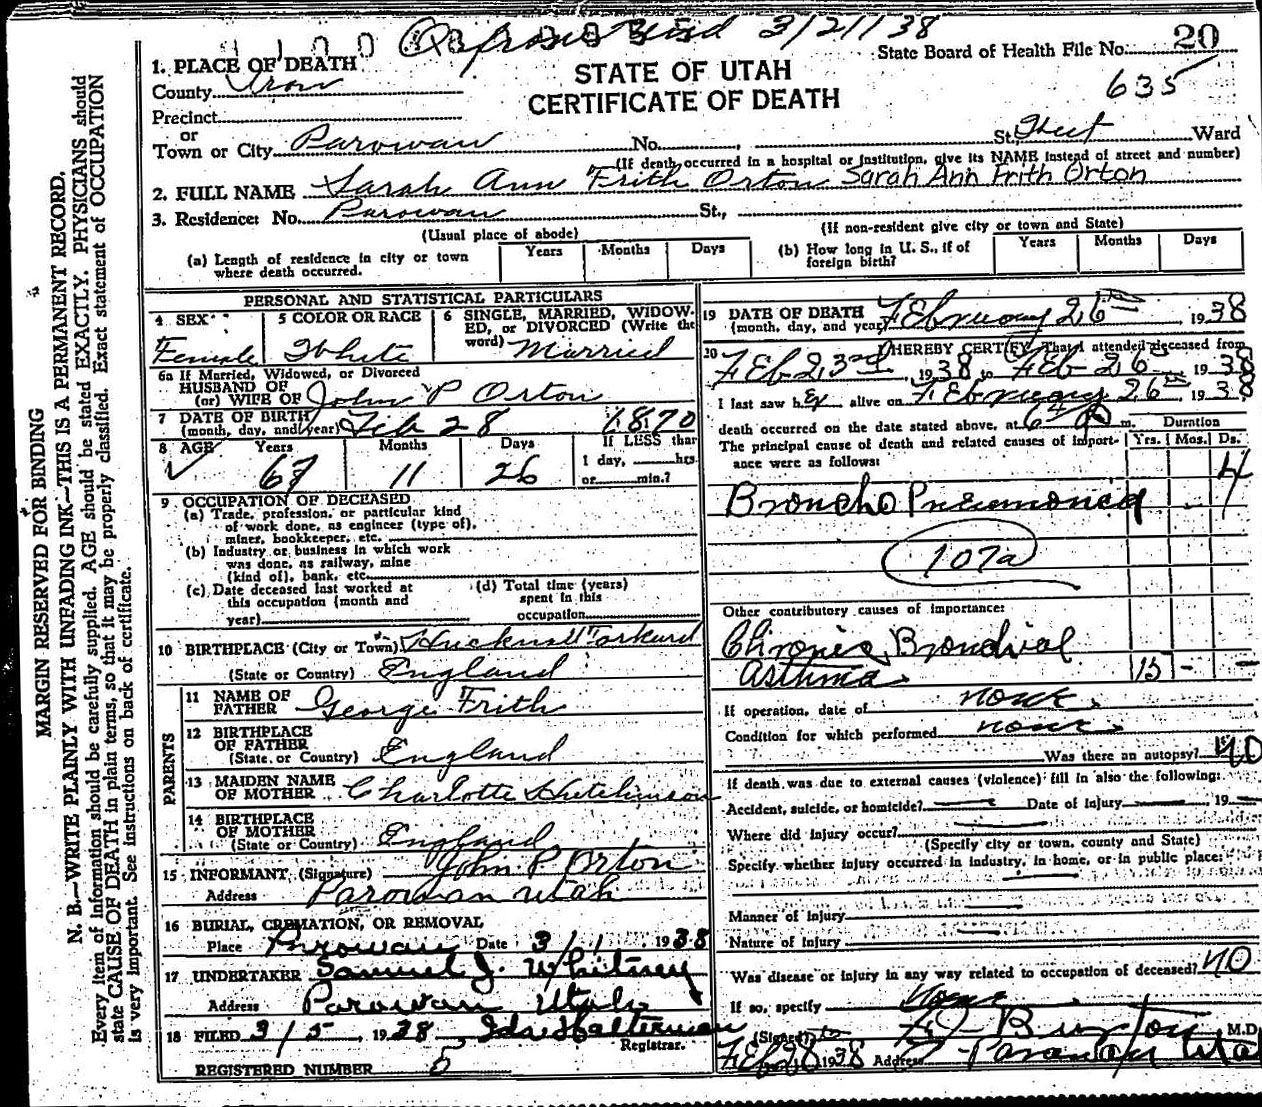 3/21/38
State Board of Health File No. 20
635
STATE OF UTAH
CERTIFICATE OF DEATH
1. PLACE OF DEATH
County Iron
Precinct
or
Town or City Parowan No. St., Ward
(If death occurred in a hospital or institution, give its NAME instead of street and number)
2. FULL NAME Sarah Ann Frith Orton Sarah Ann Frith Orton
3. Residence: No. Parowan St.,
(Usual place of abode) (If non-resident give city or town and State)
(a) Length of residence in city or town where death occurred. Years Months Days
(b) How long in U. S., if of foreign birth? Years Months Days
PERSONAL AND STATISTICAL PARTICULARS
4 SEX Female
5 COLOR OR RACE White
6 SINGLE, MARRIED, WIDOWED, or DIVORCED (Write the word) Married
6a If Married, Widowed, or Divorced
HUSBAND OF
(or) WIFE OF John P Orton
7 DATE OF BIRTH
(month, day, and year) Feb 28 1870
8 AGE Years 67 Months 11 Days 26 If LESS than
1 day, hrs.
or min.?
9 OCCUPATION OF DECEASED
(a) Trade, profession, or particular kind
of work done, as engineer (type of),
miner, bookkeeper, etc.
(b) Industry or business in which work
was done, as railway, mine
(kind of), bank, etc.
(c) Date deceased last worked at
this occupation (month and
year)
(d) Total time (years)
spent in this
occupation
10 BIRTHPLACE (City or Town) Hucknall Torkard
(State or Country) England
PARENTS
11 NAME OF
FATHER George Frith
12 BIRTHPLACE
OF FATHER
(State or Country) England
13 MAIDEN NAME
OF MOTHER Charlotte Hutchinson
14 BIRTHPLACE
OF MOTHER
(State or Country) England
15 INFORMANT (Signature) John P Orton
Address Parowan Utah
16 BURIAL, CREMATION, OR REMOVAL
Place Parowan Date 3/1/ 1938
17 UNDERTAKER Samuel J. Whitney
Address Parowan Utah
18 FILED 3/5 1938 Ida Halterman
Registrar.
REGISTERED NUMBER 5
19 DATE OF DEATH
(month, day, and year) February 26th 1938
20 I HEREBY CERTIFY, That I attended deceased from
Feb 23rd, 1938 to Feb 26 1938
I last saw her alive on February 26th 1938
death occurred on the date stated above, at m.
The principal cause of death and related causes of importance were as follows:
Duration
Yrs. Mos. Ds.
Broncho Pneumonia 4
107a
Other contributory causes of importance:
Chronic Bronchial
Asthma 15 - -
If operation, date of none
Condition for which performed none
Was there an autopsy? No
If death was due to external causes (violence) fill in also the following:
Accident, suicide, or homicide? Date of injury 19
Where did injury occur?
(Specify city or town, county and State)
Specify whether injury occurred in industry, in home, or in public place:
Manner of injury
Nature of injury
Was disease or injury in any way related to occupation of deceased? No
If so, specify None
(Signed) Burton, M.D.
Feb 28 1938 Address Parowan Uta
MARGIN RESERVED FOR BINDING
N. B.—WRITE PLAINLY WITH UNFADING INK—THIS IS A PERMANENT RECORD.
Every item of information should be carefully supplied. AGE should be stated EXACTLY. PHYSICIANS should
state CAUSE OF DEATH in plain terms, so that it may be properly classified. Exact statement of OCCUPATION
is very important. See instructions on back of certificate.